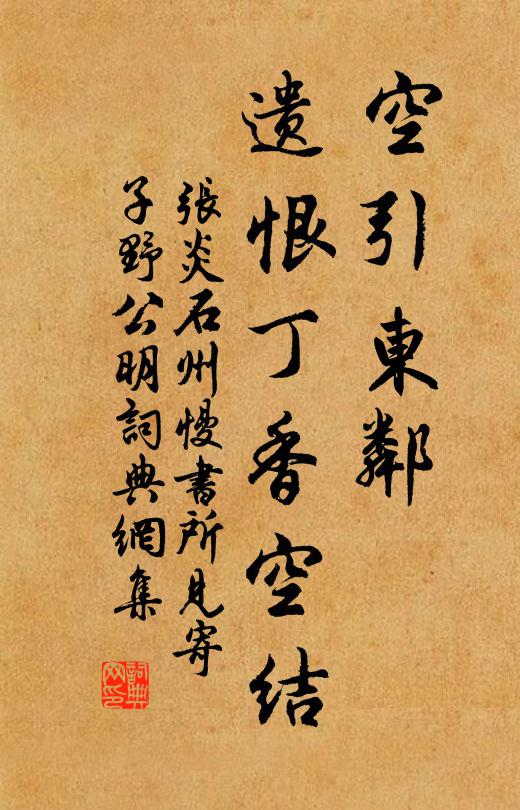 空引東鄰
遺恨丁香空結
張炎石州慢書所見寄
子野公明詞典網集
詞典
网印